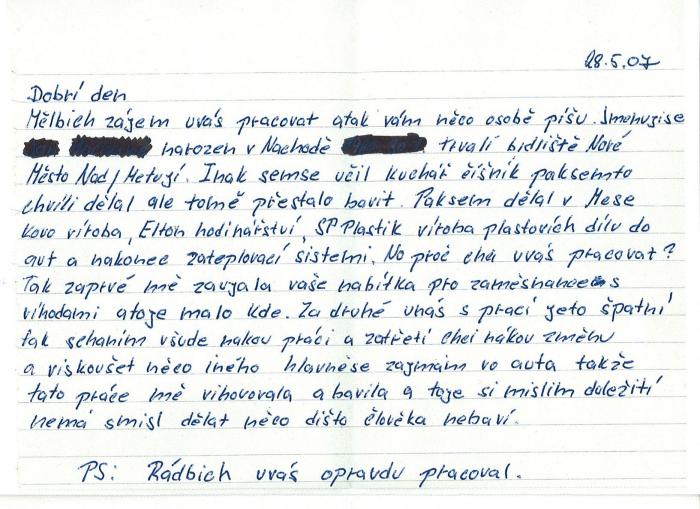 28.5.07
Dobrí den
Mělbich zájem uvás pracovat atak vám něco osobě píšu. Jmenujise
narozen v Nachodě trvalí bidliště Nové
Město Nad/Metují. Inak semse učil kuchář číšník paksemto
chvíli dělal ale tomě přestalo bavit. Paksem dělal v Mese
kovo víroba, Elton hodinářství, SP Plastik víroba plastovích dílu do
aut a nakonec zateplovací sistemi. No proč chci uvás pracovat?
Tak zaprvé mě zaujala vaše nabítka pro zaměsnance s
víhodami atoje malo kde. Za druhé unás s prací jeto špatní
tak schaním všude nakou práci a zatřetí chci nákou změnu
a viskoušet něco iného hlavněse zajmám vo auta takže
tato práce mě vihovovala a bavila a toje si mislim doležití
nemá smisl dělat něco dišto člověka nebaví.
PS: Rádbich uvás opravdu pracoval.